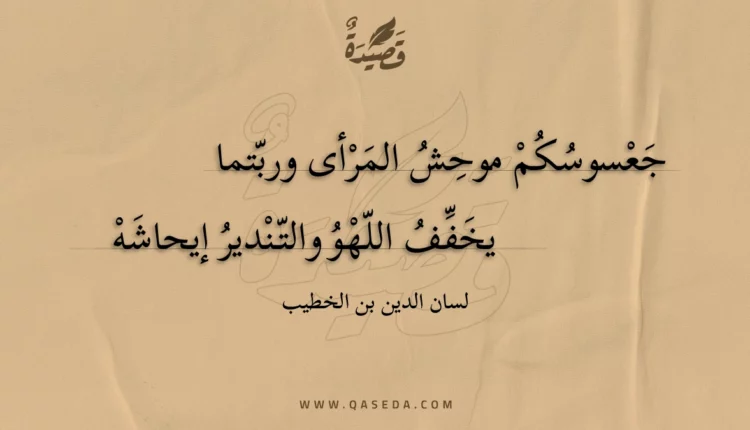 قَصِيْدَةٌ
جَعْسوسُكُمْ موحِشُ المَرْأى وربّتما
يخَفِّفُ اللّهْوُ والتّنْديرُ إيحاشَهْ
لسان الدين بن الخطيب
WWW.QASEDA.COM